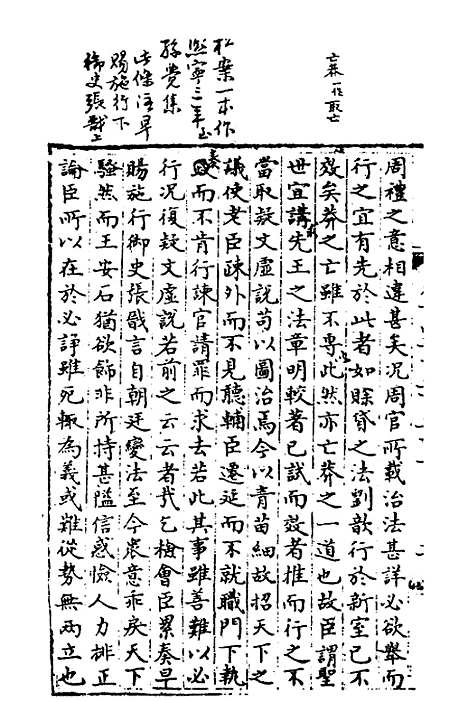 亡莽一作取亡
松案一本作
熙寧三年
孫覺集
此條注早
賜施行下
御史張戩上
周禮之意相違甚矣况周官所載治法甚詳必欲舉而
行之宜有先於此者如賖貸之法劉歆行於新室已不
效矣莽之亡雖不專此然亦亡莽之一道也故臣謂聖
世宜講先王之法章明較著已試而效者推而行之不
當取疑文虛說苟以圖治焉今以青苗細故招天下之
議使老臣疎外而不見聽輔臣遷延而不就職門下執
政而不肯行諫官請罪而求去若此其事雖善難以必
行况復疑文虛說若前之云云者哉乞檢會臣累奏早
賜施行御史張戩言自朝廷變法至今衆意乖戾天下
騷然而王安石猶欲飾非所持甚隘信惑憸人力排正
論臣所以在於必諍雖死輒為義或難從勢無兩立也